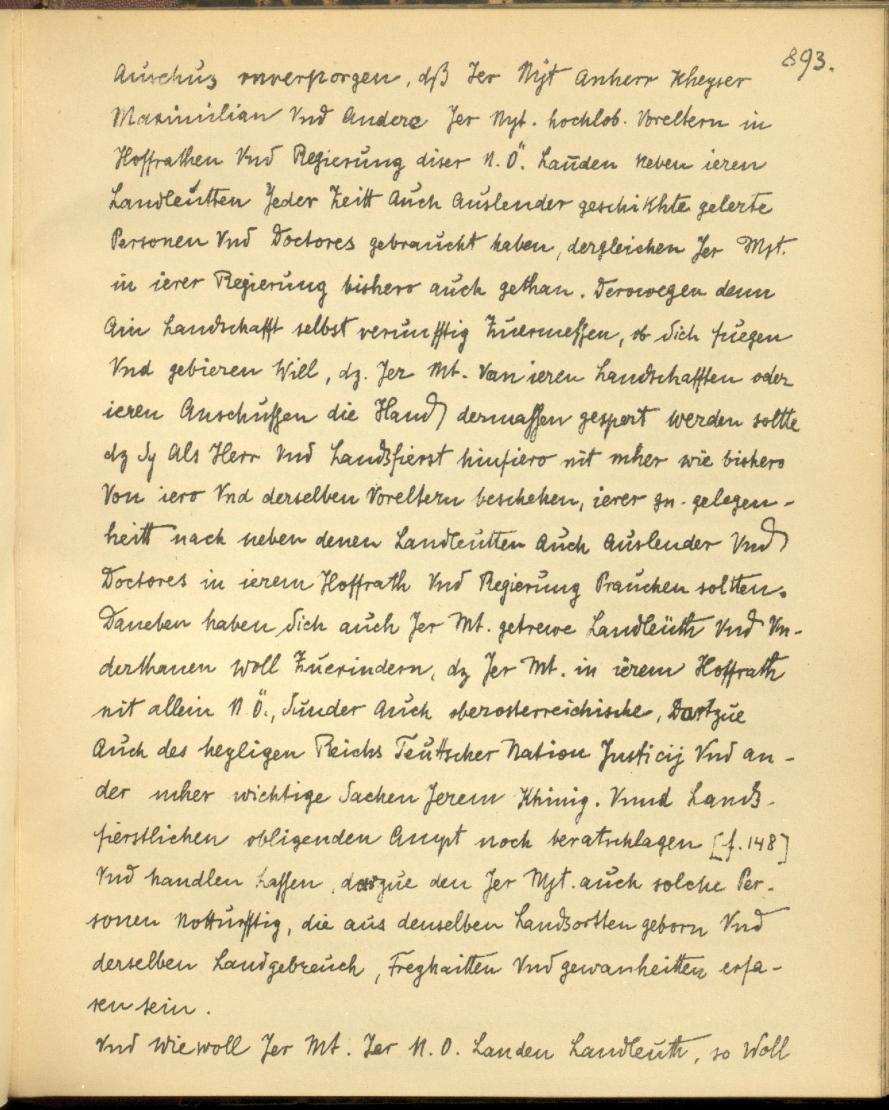 893.
Auschus vnverporgen, dß Jer Mjt Anherr Kheyser
Maximilian Vnd Andere Jer Myt. hochlob. Voreltern in
Hoffrathen Vnd Regierung diser N. Ö. Lannden Neben ieren
Landleütten Jeder Zeitt Auch Auslender geschikhte gelerte
Personen Vnd Doctores gebraucht haben, dergleichen Jer Myt.
in ierer Regierung bishero auch gethan. Derowegen denn
Ain Landschafft selbst verunfftig Zuermessen, ob Sich fuegen
Vnd gebieren Will, dz. Jer Mt. Von ieren Landschafften oder
ieren Auschußen die Hand dermassen gespert werden soltte
dz Sy Als Herr Vnd Landßfierst hinfiero nit mher wie bishero
Von iero Vnd derselben Voreltern beschehen, ierer gn. gelegen-
heitt nach neben denen Landleutten Auch Auslender Vnd
Doctores in ierem Hoffrath Vnd Regierung Prauchen soltten.
Daneben haben Sich auch Jer Mt. getrewe Landleüth Vnd Vn-
derthanen Woll Zuerindern, dz Jer Mt. in ierem Hoffrath
nit allein N Ö., Sunder Auch oberosterreichische, Dartzue
Auch des heyligen Reichs Teuttscher Nation Justicij Vnd an-
der mher wichtige Sachen Jerem Khinig. Vnnd Landß-
fierstlichen obligenden Ampt noch beratschlagen [f. 148]
Vnd handlen Lassen, darzue den Jer Myt. auch solche Per-
sonen Notturfftig, die aus denselben Landßortten geborn Vnd
derselben Landgebreuch, Freyhaitten Vnd gewanheitten erfa-
ren sein.
Vnd wiewoll Jer Mt. Jer N. O. Landen Landleuth, so Woll